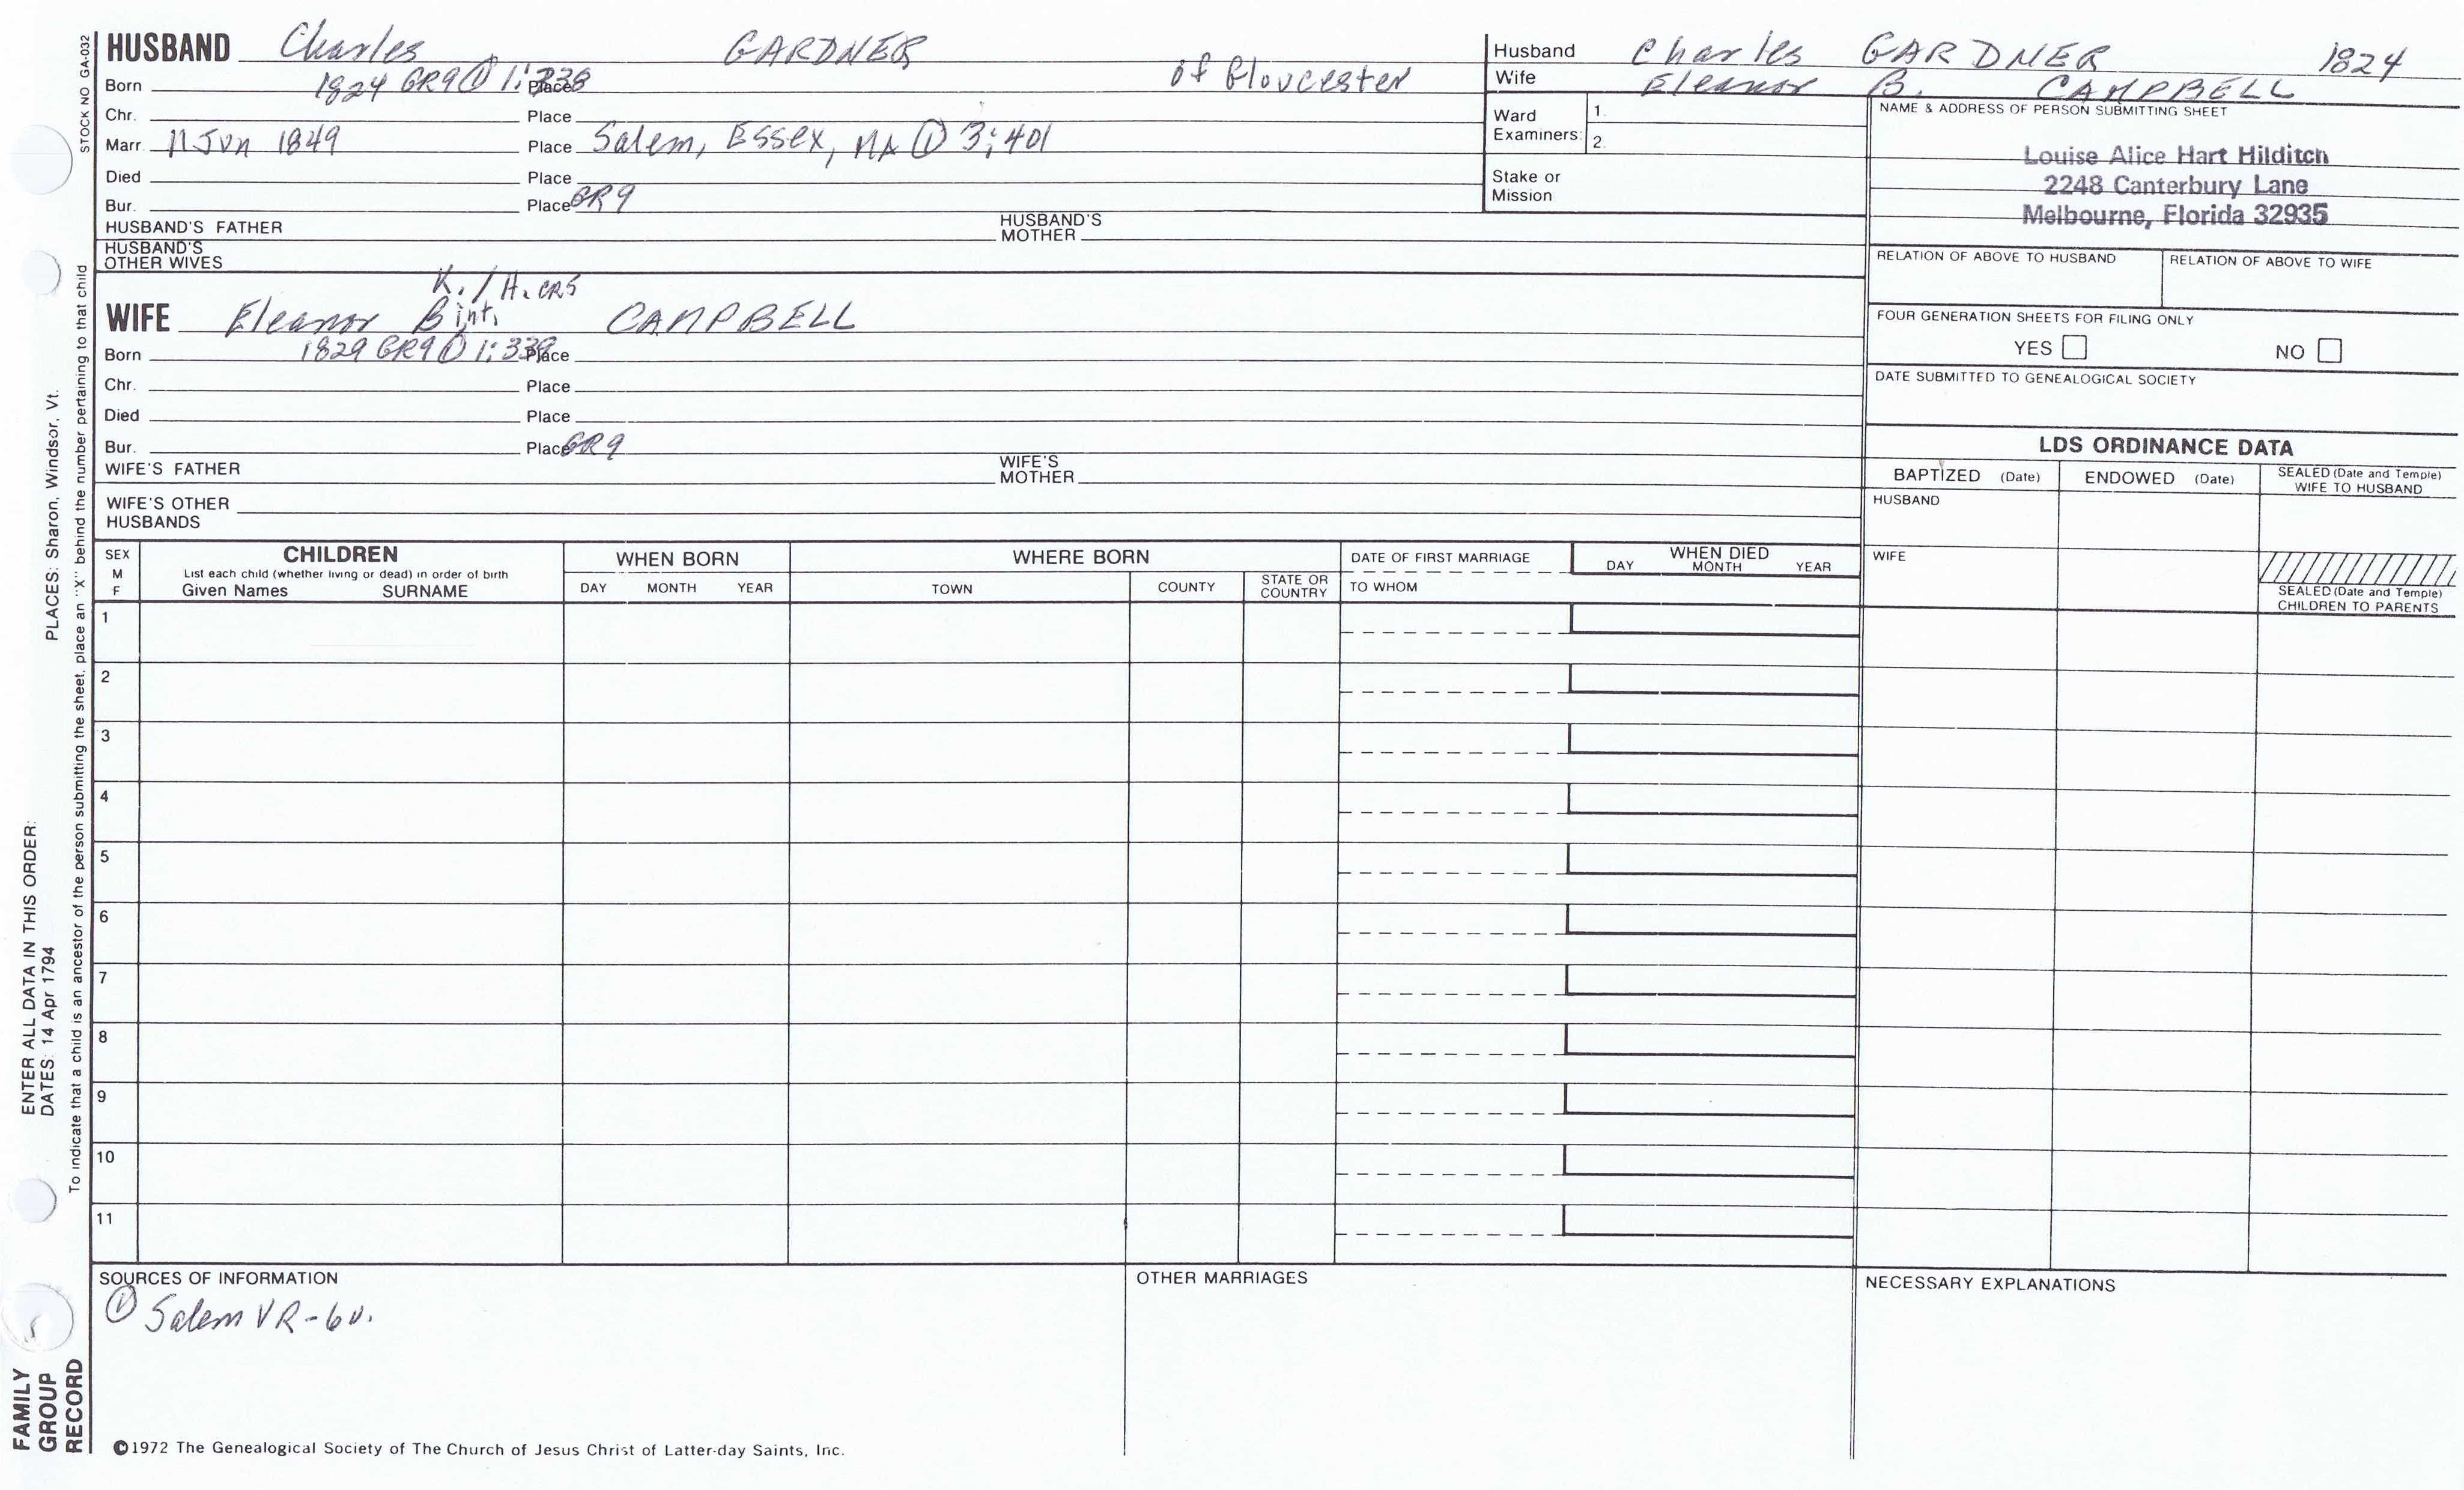 HUSBAND Charles GARDNER of Gloucester
Born 1824 GR9 ① 1:338 Place
Chr. Place
Marr. 11 Jun 1849 Place Salem, Essex, MA ① 3:401
Died Place
Bur. Place GR9
HUSBAND'S FATHER HUSBAND'S MOTHER
HUSBAND'S OTHER WIVES
Husband Charles GARDNER 1824
Wife Eleanor B. CAMPBELL
Ward Examiners: 1. 2.
Stake or Mission
NAME & ADDRESS OF PERSON SUBMITTING SHEET
Louise Alice Hart Hilditch
2248 Canterbury Lane
Melbourne, Florida 32935
RELATION OF ABOVE TO HUSBAND RELATION OF ABOVE TO WIFE
FOUR GENERATION SHEETS FOR FILING ONLY
YES NO
DATE SUBMITTED TO GENEALOGICAL SOCIETY
K./H. CR5
WIFE Eleanor B int. CAMPBELL
Born 1829 GR9 ① 1:339 Place
Chr. Place
Died Place
Bur. Place GR9
WIFE'S FATHER WIFE'S MOTHER
WIFE'S OTHER HUSBANDS
LDS ORDINANCE DATA
BAPTIZED (Date) ENDOWED (Date) SEALED (Date and Temple) WIFE TO HUSBAND
HUSBAND
WIFE
SEALED (Date and Temple) CHILDREN TO PARENTS
SEX M F
CHILDREN
List each child (whether living or dead) in order of birth
Given Names SURNAME
WHEN BORN
DAY MONTH YEAR
WHERE BORN
TOWN COUNTY STATE OR COUNTRY
DATE OF FIRST MARRIAGE
TO WHOM
WHEN DIED
DAY MONTH YEAR
1
2
3
4
5
6
7
8
9
10
11
SOURCES OF INFORMATION
① Salem VR-6v.
OTHER MARRIAGES
NECESSARY EXPLANATIONS
©1972 The Genealogical Society of The Church of Jesus Christ of Latter-day Saints, Inc.
STOCK NO GA-032
To indicate that a child is an ancestor of the person submitting the sheet, place an "X" behind the number pertaining to that child
ENTER ALL DATA IN THIS ORDER:
DATES: 14 Apr 1794 PLACES: Sharon, Windsor, Vt.
FAMILY
GROUP
RECORD